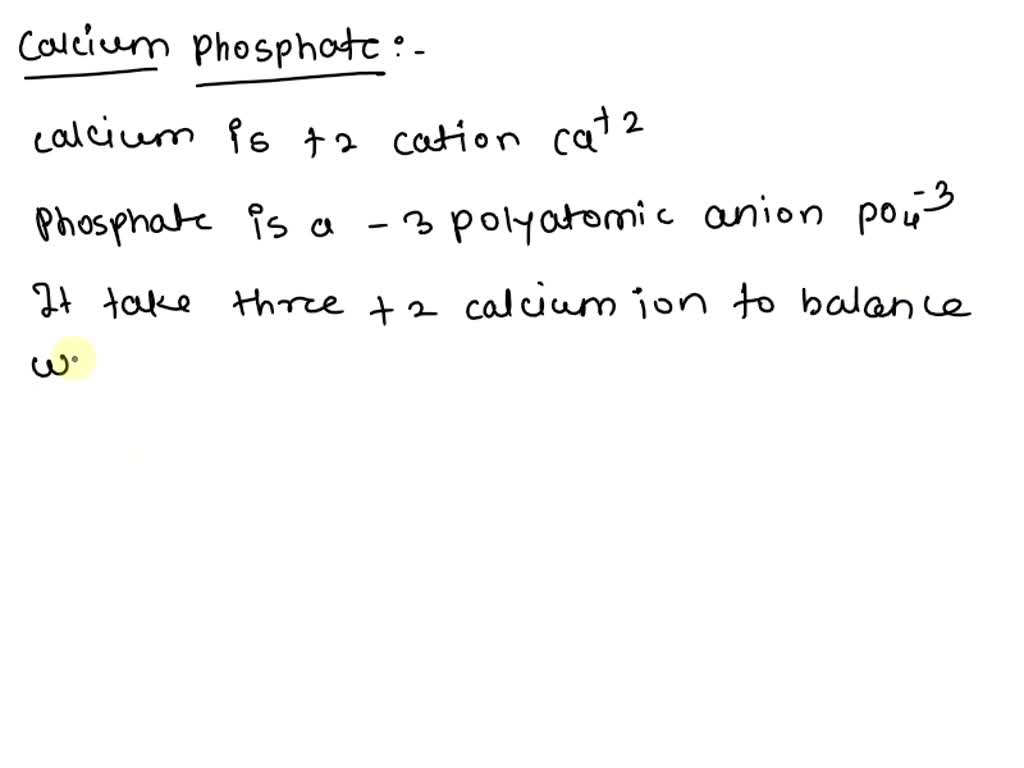 Calcium phosphate :-
calcium is +2 cation Ca⁺²
Phosphate is a -3 polyatomic anion PO₄⁻³
It take three +2 calcium ion to balance
w